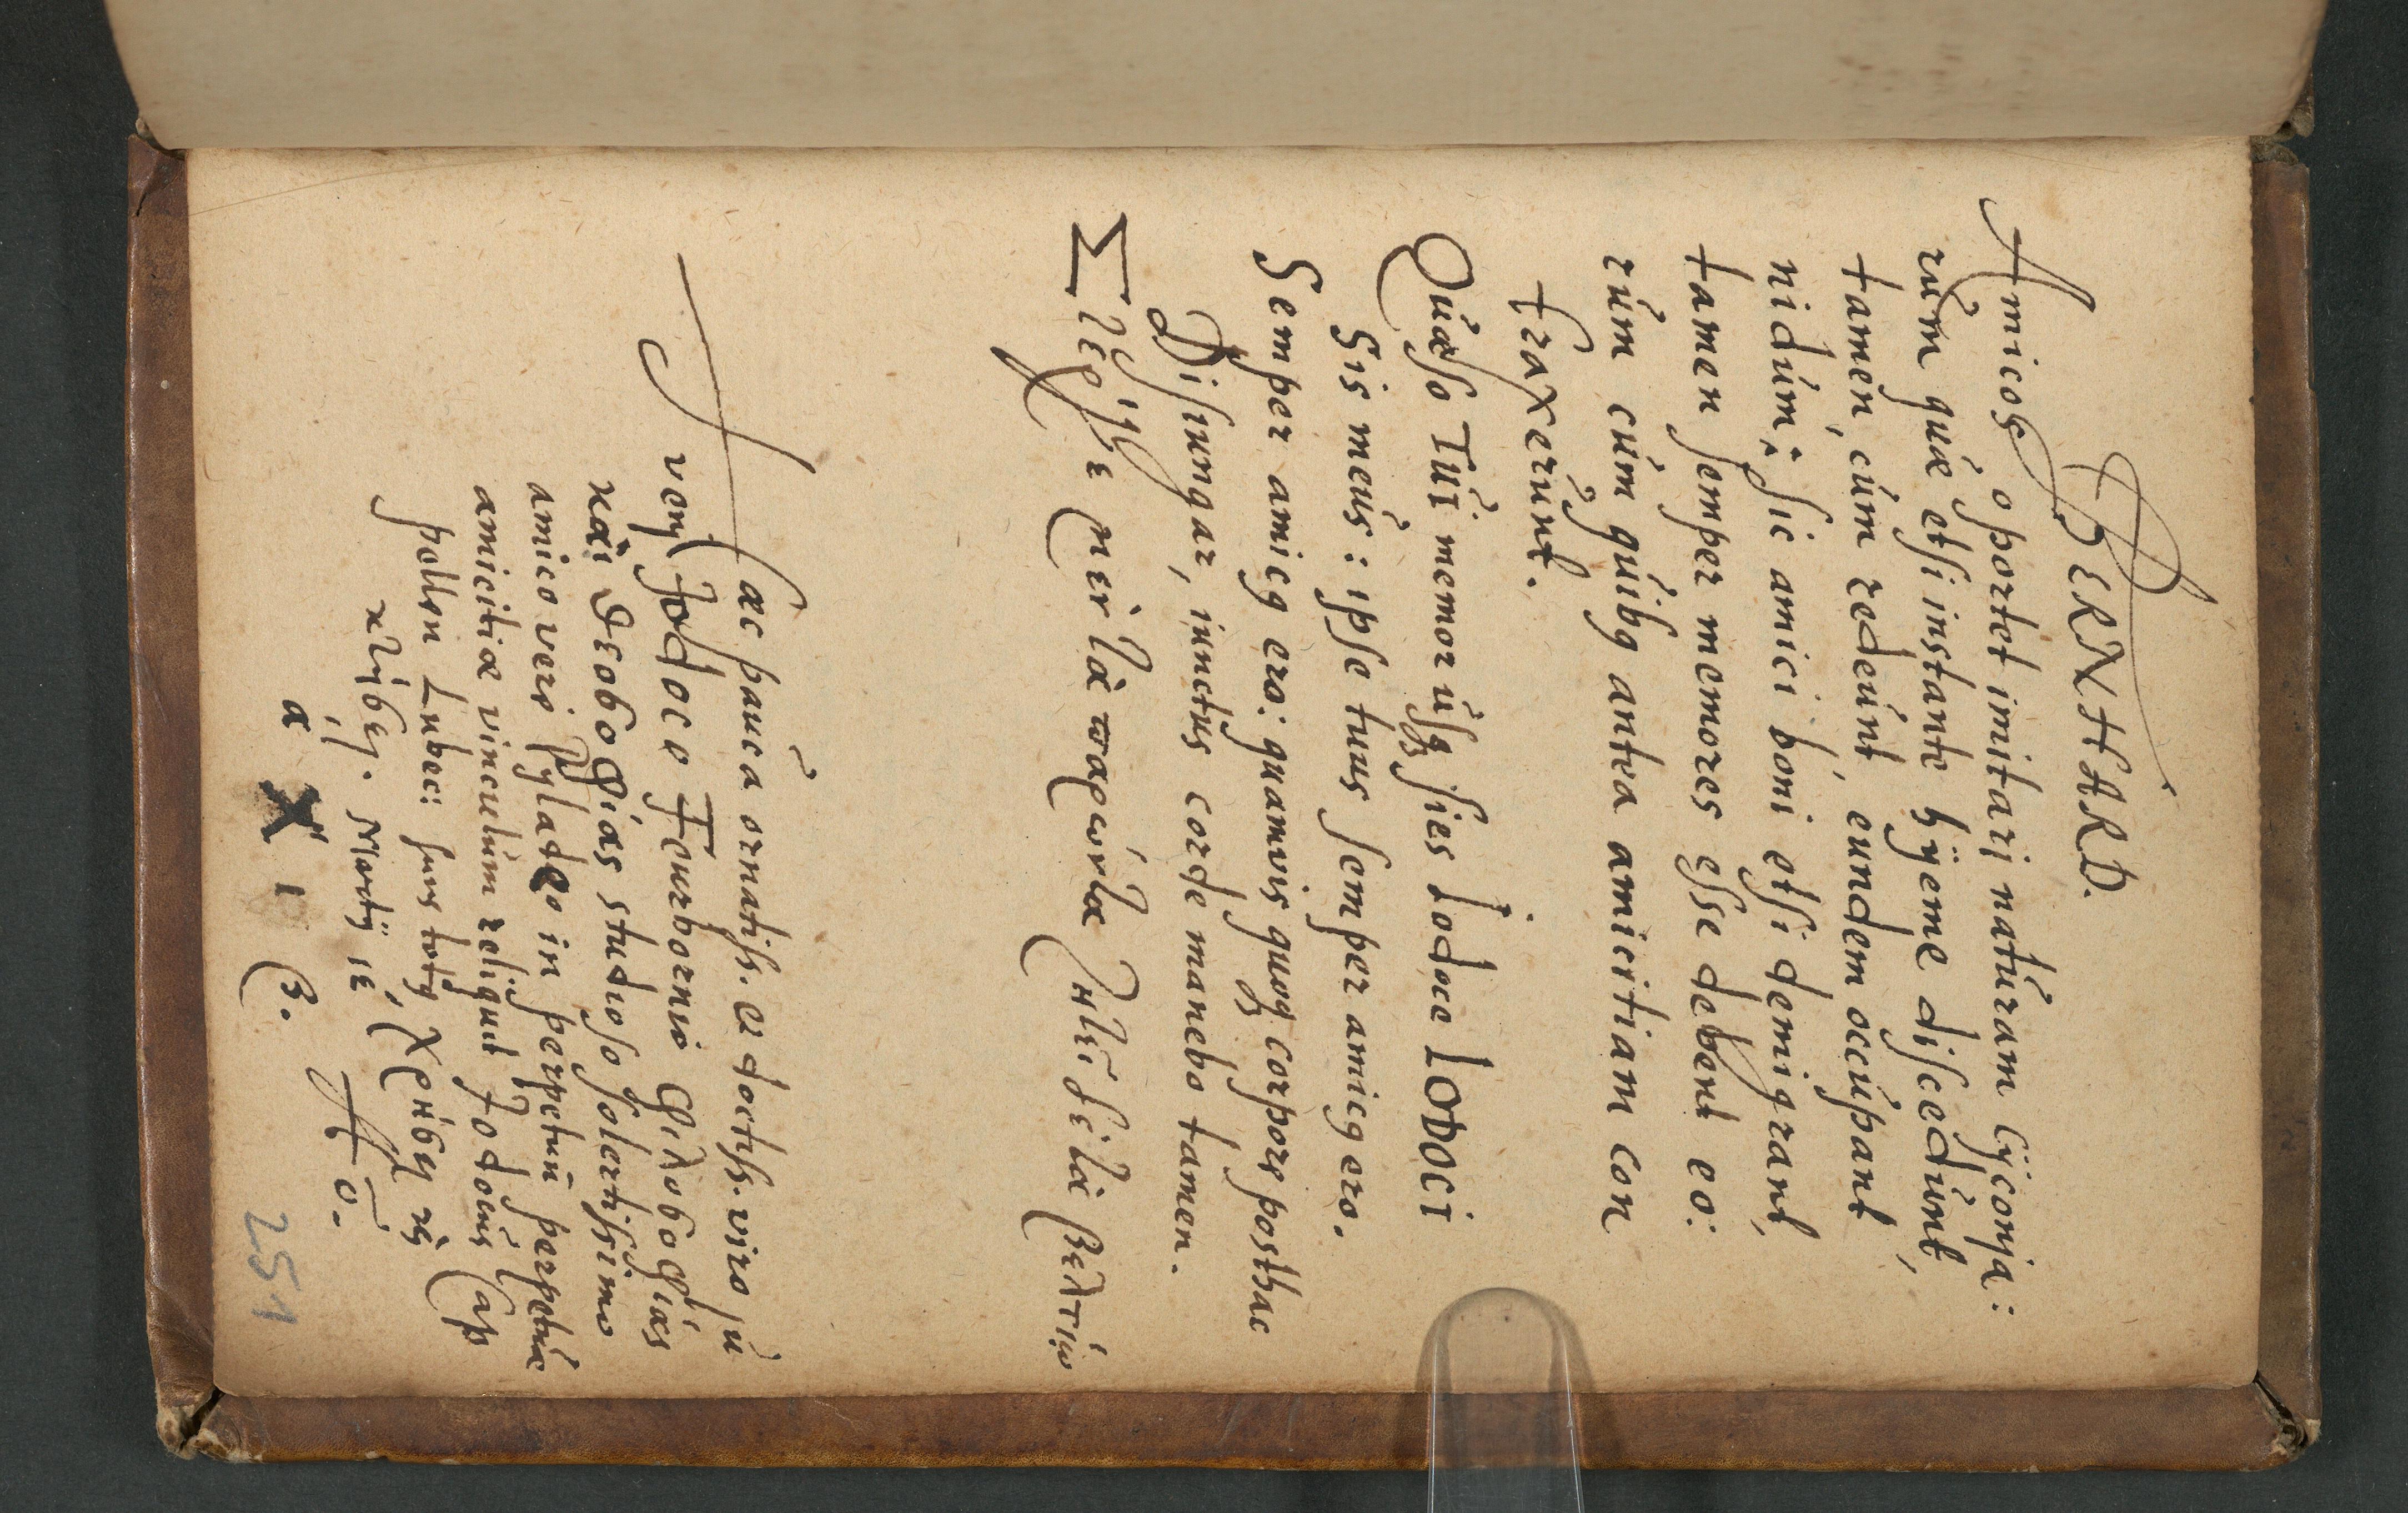 BERNHARD.
Amicos oportet imitari natúram Cÿconja:
rúm quæ etsi instante hÿeme discedúnt,
tamen, cúm redeúnt, eundem occúpant
nidúm: sic amici boni etsi demigrant,
tamen semper memores esse debent eo:
rúm cúm qúibꝰ antea amicitiam con
traxerúnt.
Qúæso Túi memor úsqꝫ sies Iodoce IODOCI
Sis meús: ipse tuus semper amicꝰ ero.
Semper amicꝰ ero: quamvis quoqꝫ corpore posthac
Disiungar, iunctus corde manebo tamen.
Στέργε μὲν τὰ παρόντα ζήτει δὲ τὰ βελτίω
Hæc paúca ornatiss. & doctiss. viro jú
veni Jodoco Fourbornio φιλοσοφίας
καὶ θεοσοφίας studioso solertissimo
amico verò Pyladeo in perpetuú perpetuæ
amicitiæ vincúlúm reliquit Jodocús Cap
pellen Lubec: suus totꝰ, χρήσει καὶ
κτήσει. Martij 12
A̅o̅.
α X 1 β.
251